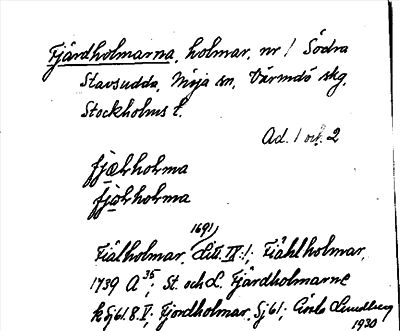 Fjärdholmarna, holmar, nr 1 Södra
Stavsudda, Möja sn, Värmdö skg,
Stockholms l.
Ad. 1 och 2
fjæɫhoɫma
fjoɫhoɫma
1691
Fiälholmar, Litt. IX:1; Fiählholmar,
1739 A 35; St. och L. Fjärdholmarne
k Sj 61.8.V; Fjordholmar, Sj 61; Lundberg
1930